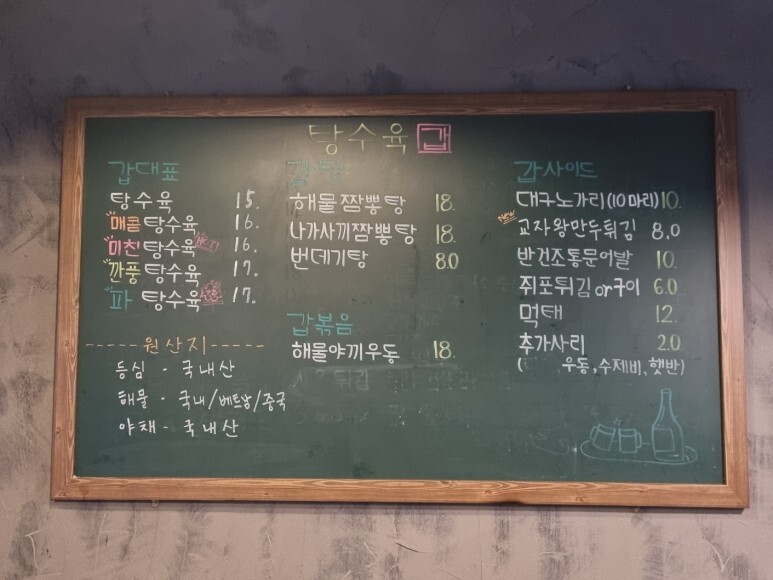 탕수육 갑
갑대표
탕수육 15.
"매콤 탕수육 16.
"미친 탕수육 16.
"깐풍 탕수육 17.
"파 탕수육 17.
-----원산지-----
등심 - 국내산
해물 - 국내/베트남/중국
야채 - 국내산
갑탕
해물짬뽕탕 18.
나가사끼짬뽕탕 18.
번데기탕 8.0
갑볶음
해물야끼우동 18.
갑사이드
대구노가리(10마리) 10.
New 교자왕만두튀김 8.0
반건조통문어발 10.
쥐포튀김or구이 6.0
먹태 12.
추가사리 2.0
( 우동,수제비,햇반)